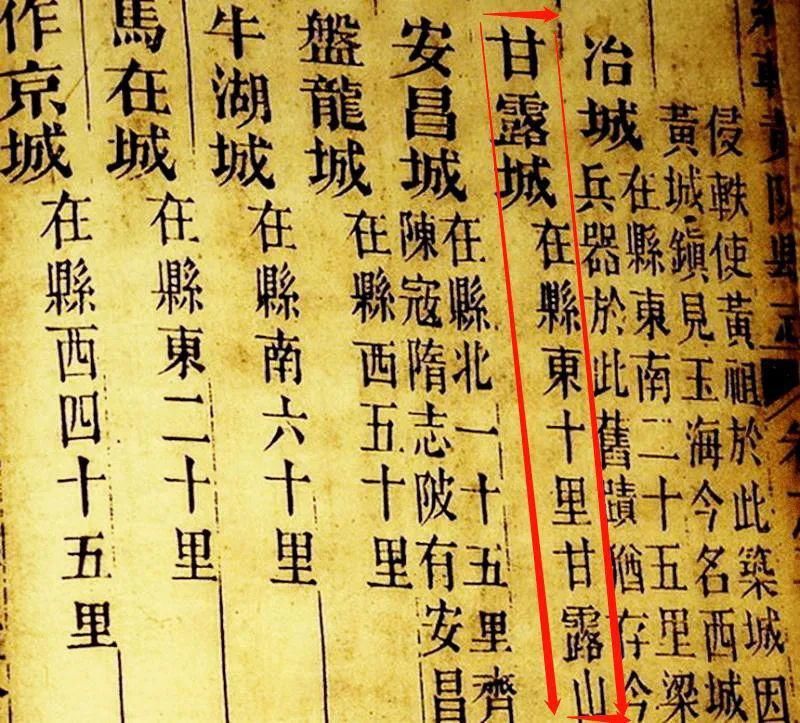 黃陂縣志
侵軼使黃祖於此築城因
黃城鎮見玉海今名西城
冶城
在縣東南二十五里梁
兵器於此舊蹟猶存今
甘露城
在縣東十里甘露山
安昌城
在縣北一十五里齊
陳寇隋志陂有安昌
盤龍城
在縣西五十里
牛湖城
在縣南六十里
馬在城
在縣東二十里
作京城
在縣西四十五里